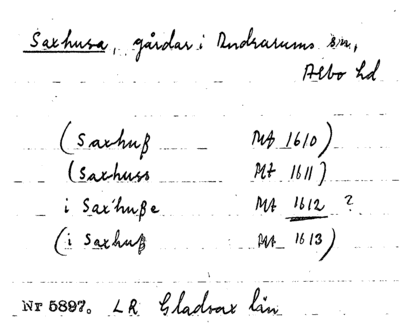 Saxhusa, gårdar i Andrarums sn,
Albo hd
(Saxhuß Mt 1610)
(Saxhuss Mt 1611)
i Saxhuße Mt 1612 ?
(i Saxhuß Mt 1613)
Nr 5897. LR Gladsax län